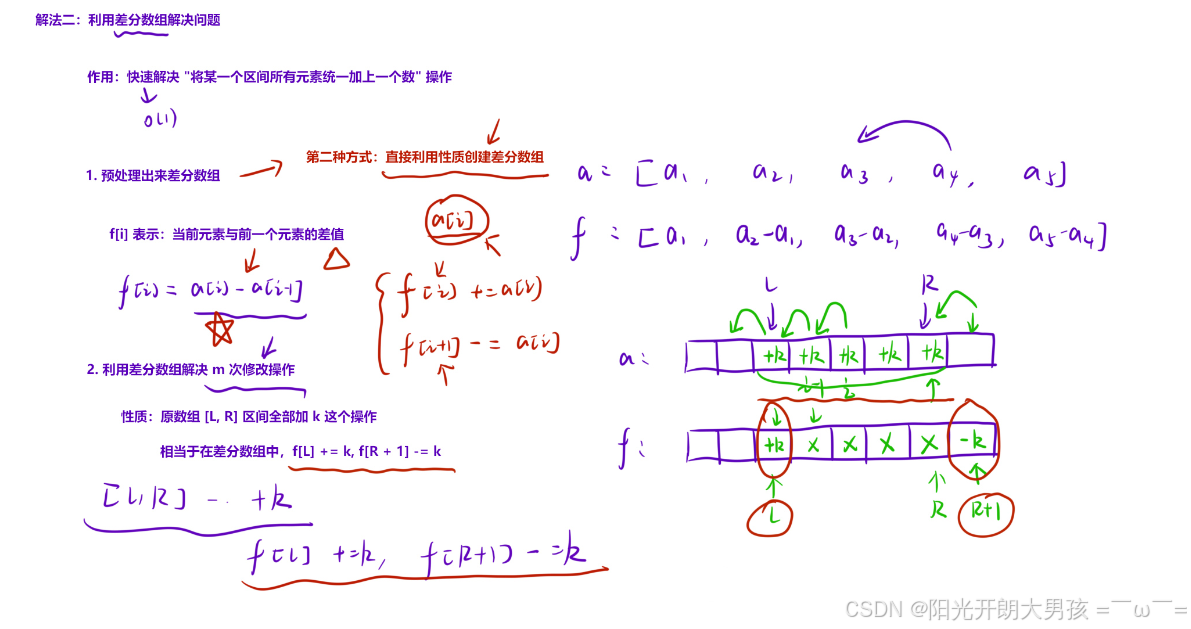 解法二：利用差分数组解决问题
作用：快速解决 "将某一个区间所有元素统一加上一个数" 操作
O(1)
第二种方式：直接利用性质创建差分数组
1. 预处理出来差分数组
a = [a1, a2, a3, a4, a5]
f[i] 表示：当前元素与前一个元素的差值
a[i]
f = [a1, a2-a1, a3-a2, a4-a3, a5-a4]
f[i] = a[i] - a[i-1]
f[i] += a[i]
f[i+1] -= a[i]
L R
a: +k +k +k +k +k
i-1 i
2. 利用差分数组解决 m 次修改操作
性质：原数组 [L, R] 区间全部加 k 这个操作
相当于在差分数组中，f[L] += k, f[R + 1] -= k
f: +k × × × × -k
L R R+1
[L,R] -- +k
f[L] += k, f[R+1] -= k
CSDN @阳光开朗大男孩 =￣ω￣=